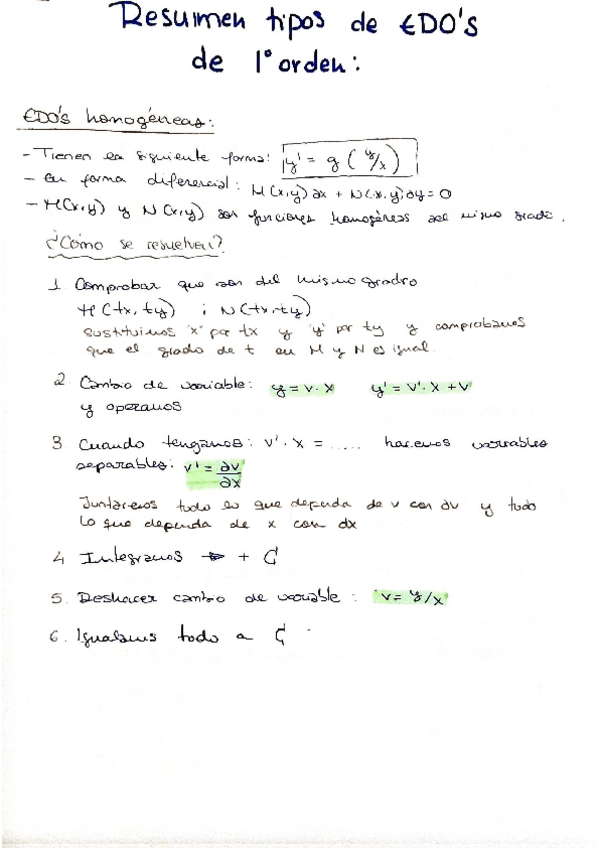 Resumen tipos de EDO's
de 1º orden:
EDO's homogéneas:
- Tienen la siguiente forma: y' = g (y/x)
- en forma diferencial: M(x,y)∂x + N(x,y)∂y = 0
- M(x,y) y N(x,y) son funciones homogéneas del mismo grado.
¿Cómo se resuelven?
1 Comprobar que son del mismo gradro
M(tx, ty) i N(tx, ty)
sustituimos 'x' por tx y 'y' por ty y comprobamos
que el grado de t en M y N es igual.
2. Cambio de variable: y = v · x y' = v' · x + v
y operamos
3 Cuando tengamos: v' · x = ..... hacemos variables
separables: v' = ∂v/∂x
Juntaremos todo lo que dependa de v con ∂v y todo
lo que dependa de x con dx
4 Integramos → + C
5. Deshacer cambio de variable: v = y/x
6. Igualamos todo a C